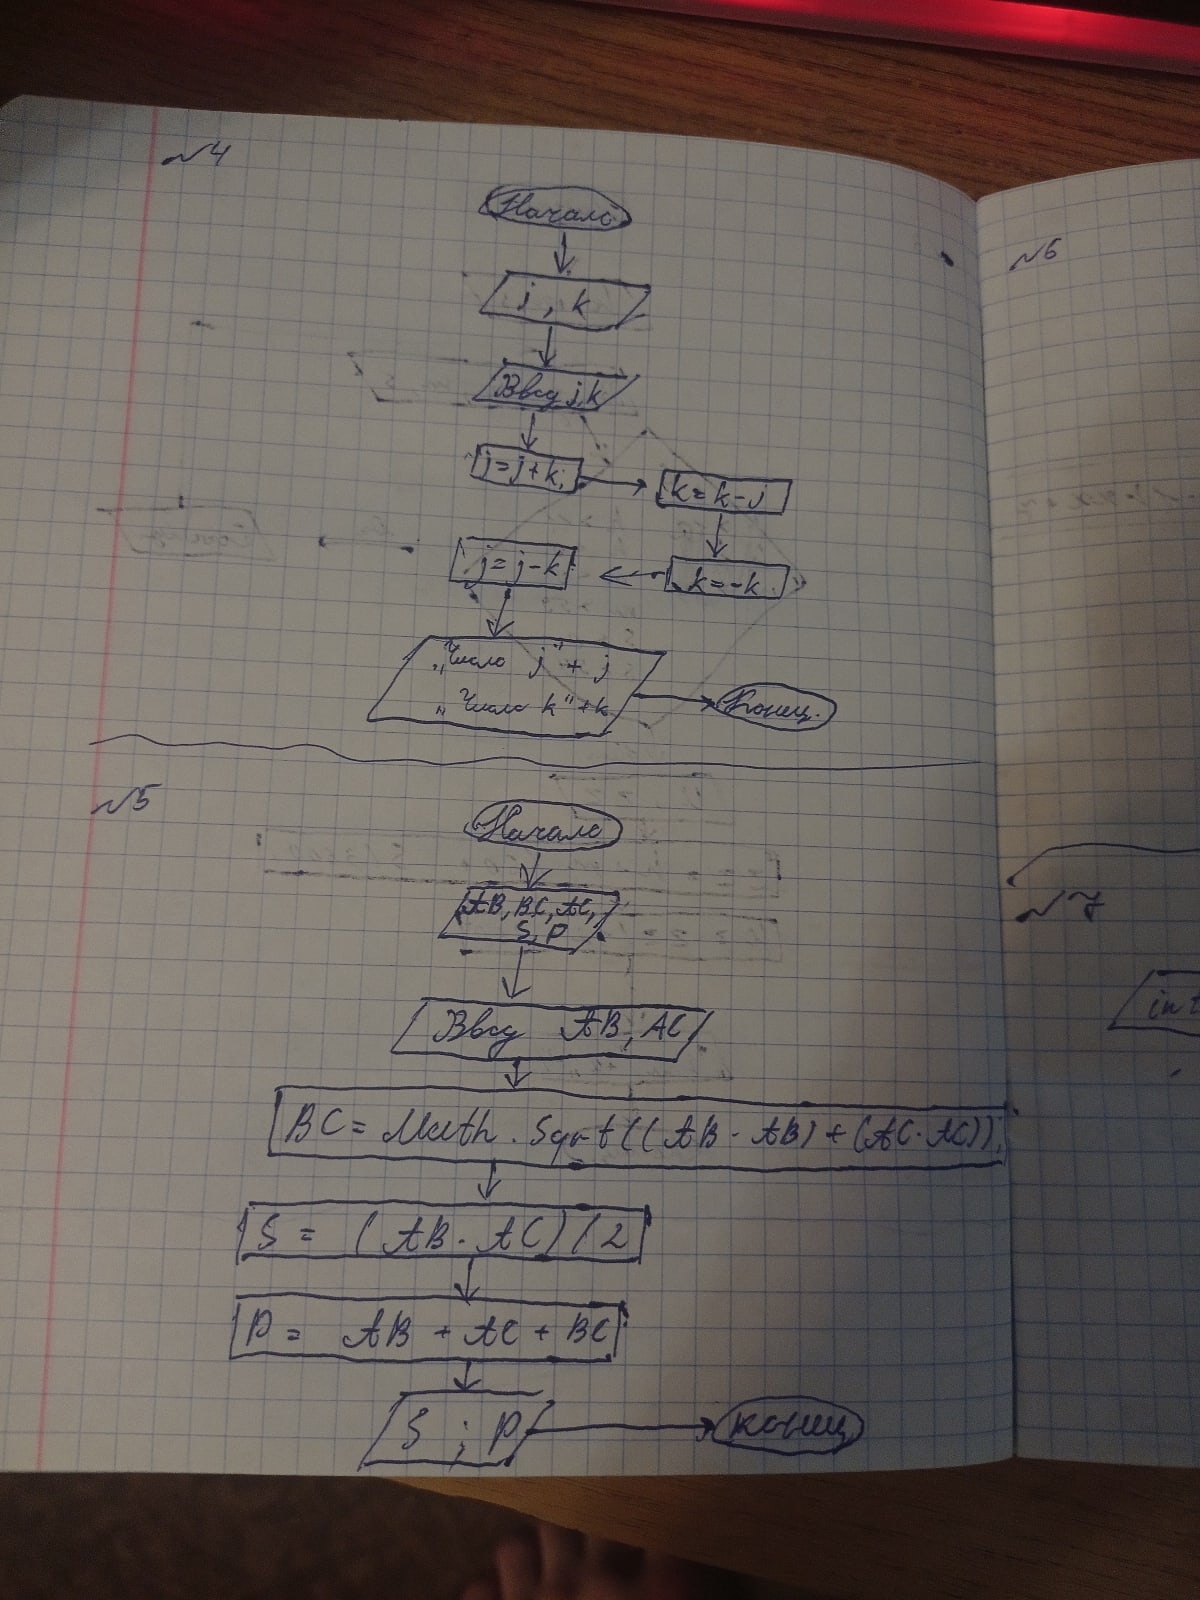 №4
Начало
j, k
Ввод j,k
j=j+k;
k=k-j
j=j-k
k=-k.
"Число j"+ j
"Число k"+k
Конец.
№5
Начало
AB, BC, AC,
S, P
Ввод AB, AC
BC= Math.Sqrt((AB·AB)+(AC·AC));
S = (AB·AC)/2
P= AB + AC + BC;
S ; P
конец
№6
№7
int